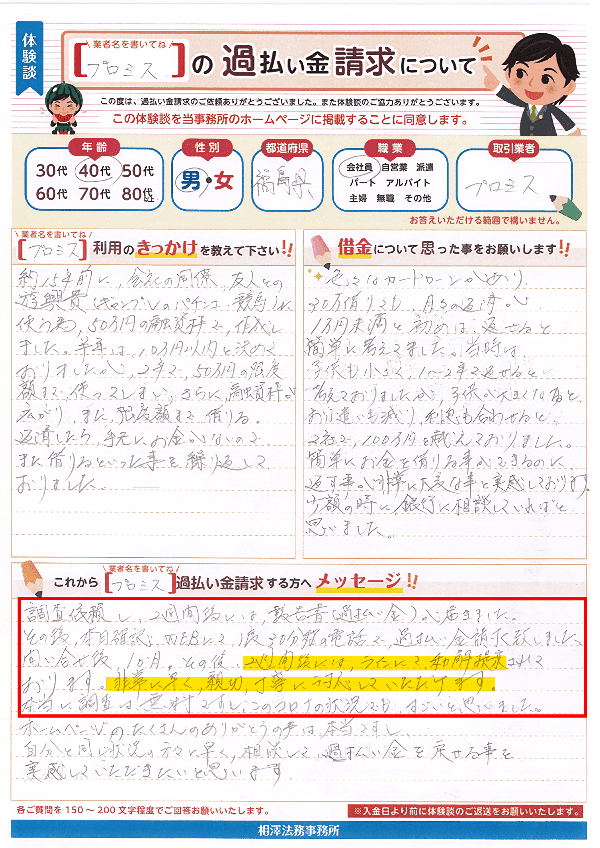 体験談
業者名を書いてね
[プロミス]の過払い金請求について
この度は、過払い金請求のご依頼ありがとうございました。また体験談のご協力ありがとうございます。
この体験談を当事務所のホームページに掲載することに同意します。
年齢
30代 40代 50代
60代 70代 80代
性別
男・女
都道府県
福島県
職業
会社員 自営業 派遣
パート アルバイト
主婦 無職 その他
取引業者
プロミス
お答えいただける範囲で構いません。
業者名を書いてね
[プロミス]利用のきっかけを教えて下さい!!
約15年前に、会社の同僚、友人との
遊興費(ギャンブルのパチンコ、競馬)に
使う為、50万円の融資枠で、作成し
ました。半年は、10万円以内と決めて
おりましたが、2年で、50万の限度
額まで、使ってしまい、さらに、融資枠が
広がり、また、限度額まで借りる。
返済したら、手元にお金がないので
また借りるといった事を繰り返して
おりました。
借金について思った事をお願いします!!
色々なカードローンがあり、
30万借りても、月々の返済が
1万円未満と初めは、返せると
簡単に考えてました。当時は
子供も小さく、1〜2年で返せると
考えておりましたが、子供が大きくなると、
お小遣いも減り、利息も合わせると
2社で、100万を超えておりました。
簡単にお金を借りる事ができるのに、
返す事が非常に大変な事と実感しております。
少額の時に、銀行に相談していればと
思いました。
業者名を書いてね
これから[プロミス]過払い金請求する方へメッセージ!!
調査依頼し、2週間後には、報告書(過払い金)が届きました。
その後、本日確認し、WEBにて、30分程の電話で、過払い金請求致しました。
問い合せ後、10月。その後、2週間後には、うたにて和解提案されて
おります。非常に早く、親切、丁寧に対応していただけます。
本当に調査は、無料ですし、このコロナの状況でも、すごいと思いました。
ホームページのたくさんのありがとうの声は、本当ですし、
自分と同じ状況の方々に早く、相談して、過払い金を戻せる事を
実感していただきたいと思います。
各ご質問を150〜200文字程度でご回答お願いいたします。
※入金日より前に体験談のご返送をお願いいたします。
相澤法務事務所